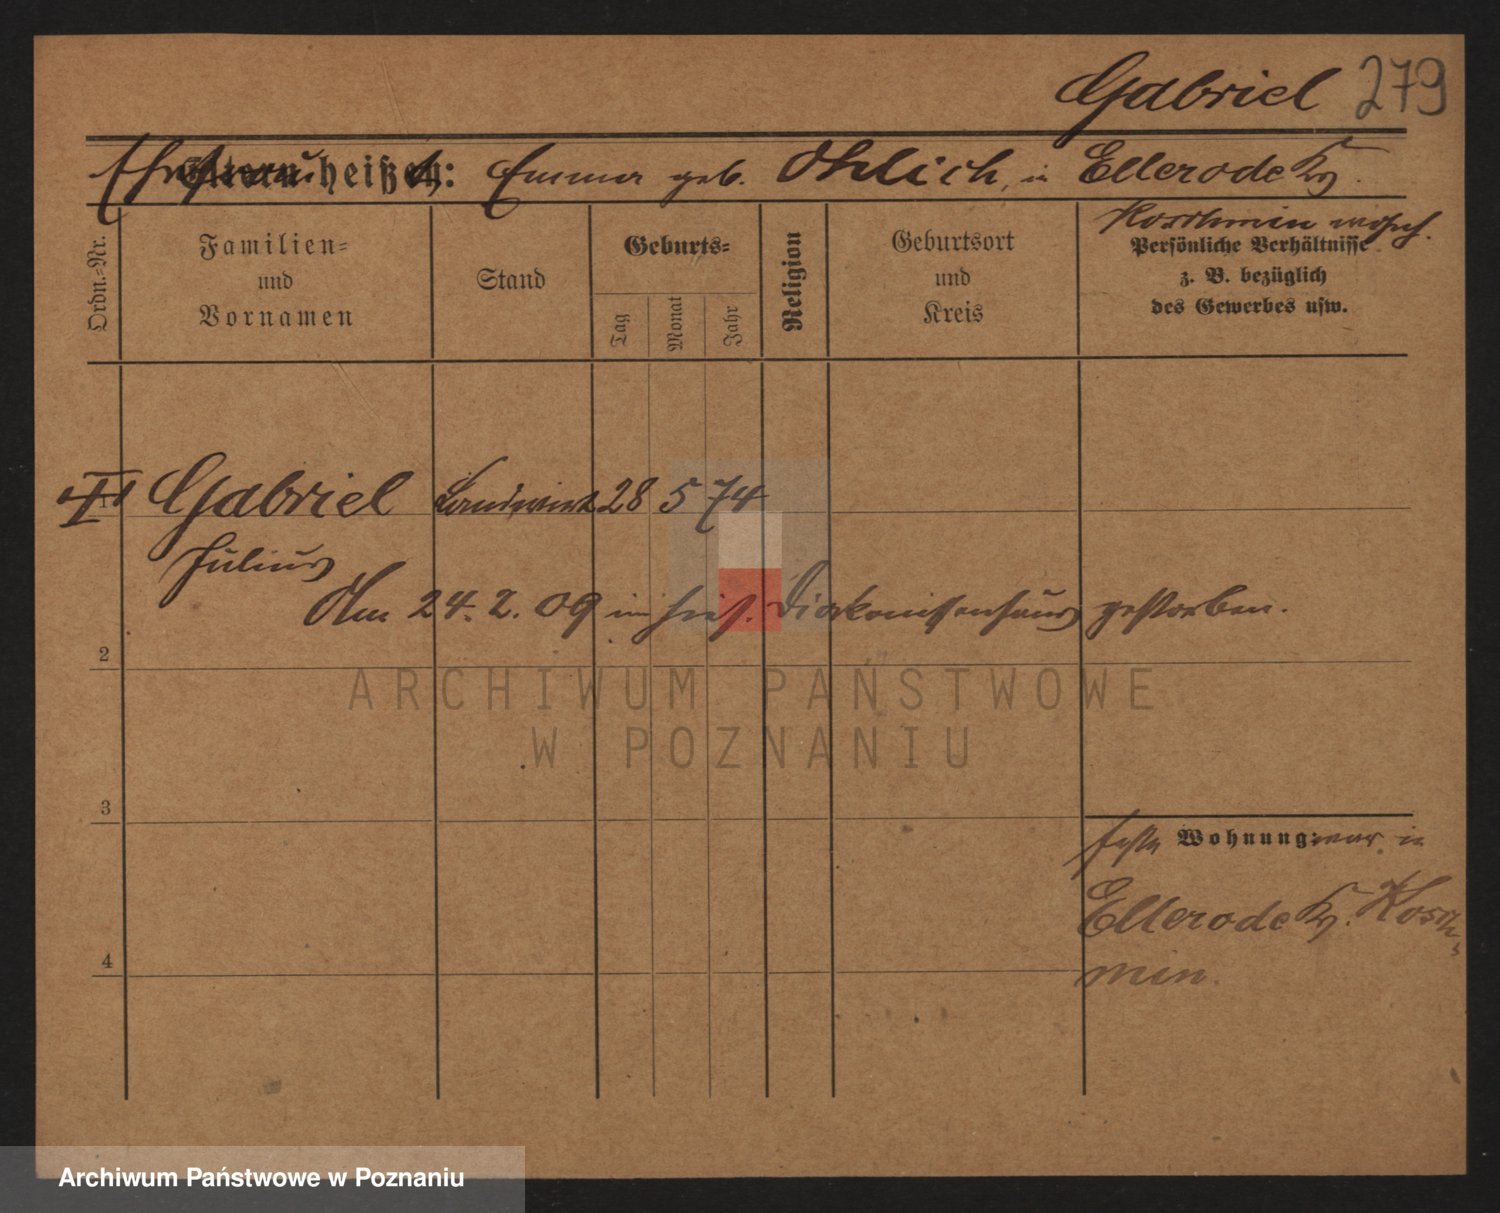 Gabriel 279
Ehefrau Eltern heißen: Emma geb. Ohlich, in Ellerode Kr.
Koschmin wohnh.
Ordn.-Nr.
Familien-
und
Vornamen
Stand
Geburts-
Tag
Monat
Jahr
Religion
Geburtsort
und
Kreis
Persönliche Verhältnisse
z. B. bezüglich
des Gewerbes usw.
1
Gabriel Landwirt 28 5 74
Julius
Am 24. 2. 09 im hies. Diakonissenhaus gestorben.
2
ARCHIWUM PAŃSTWOWE
W POZNANIU
3
feste Wohnung: war in
Ellerode Kr. Kosch-
min.
4
Archiwum Państwowe w Poznaniu